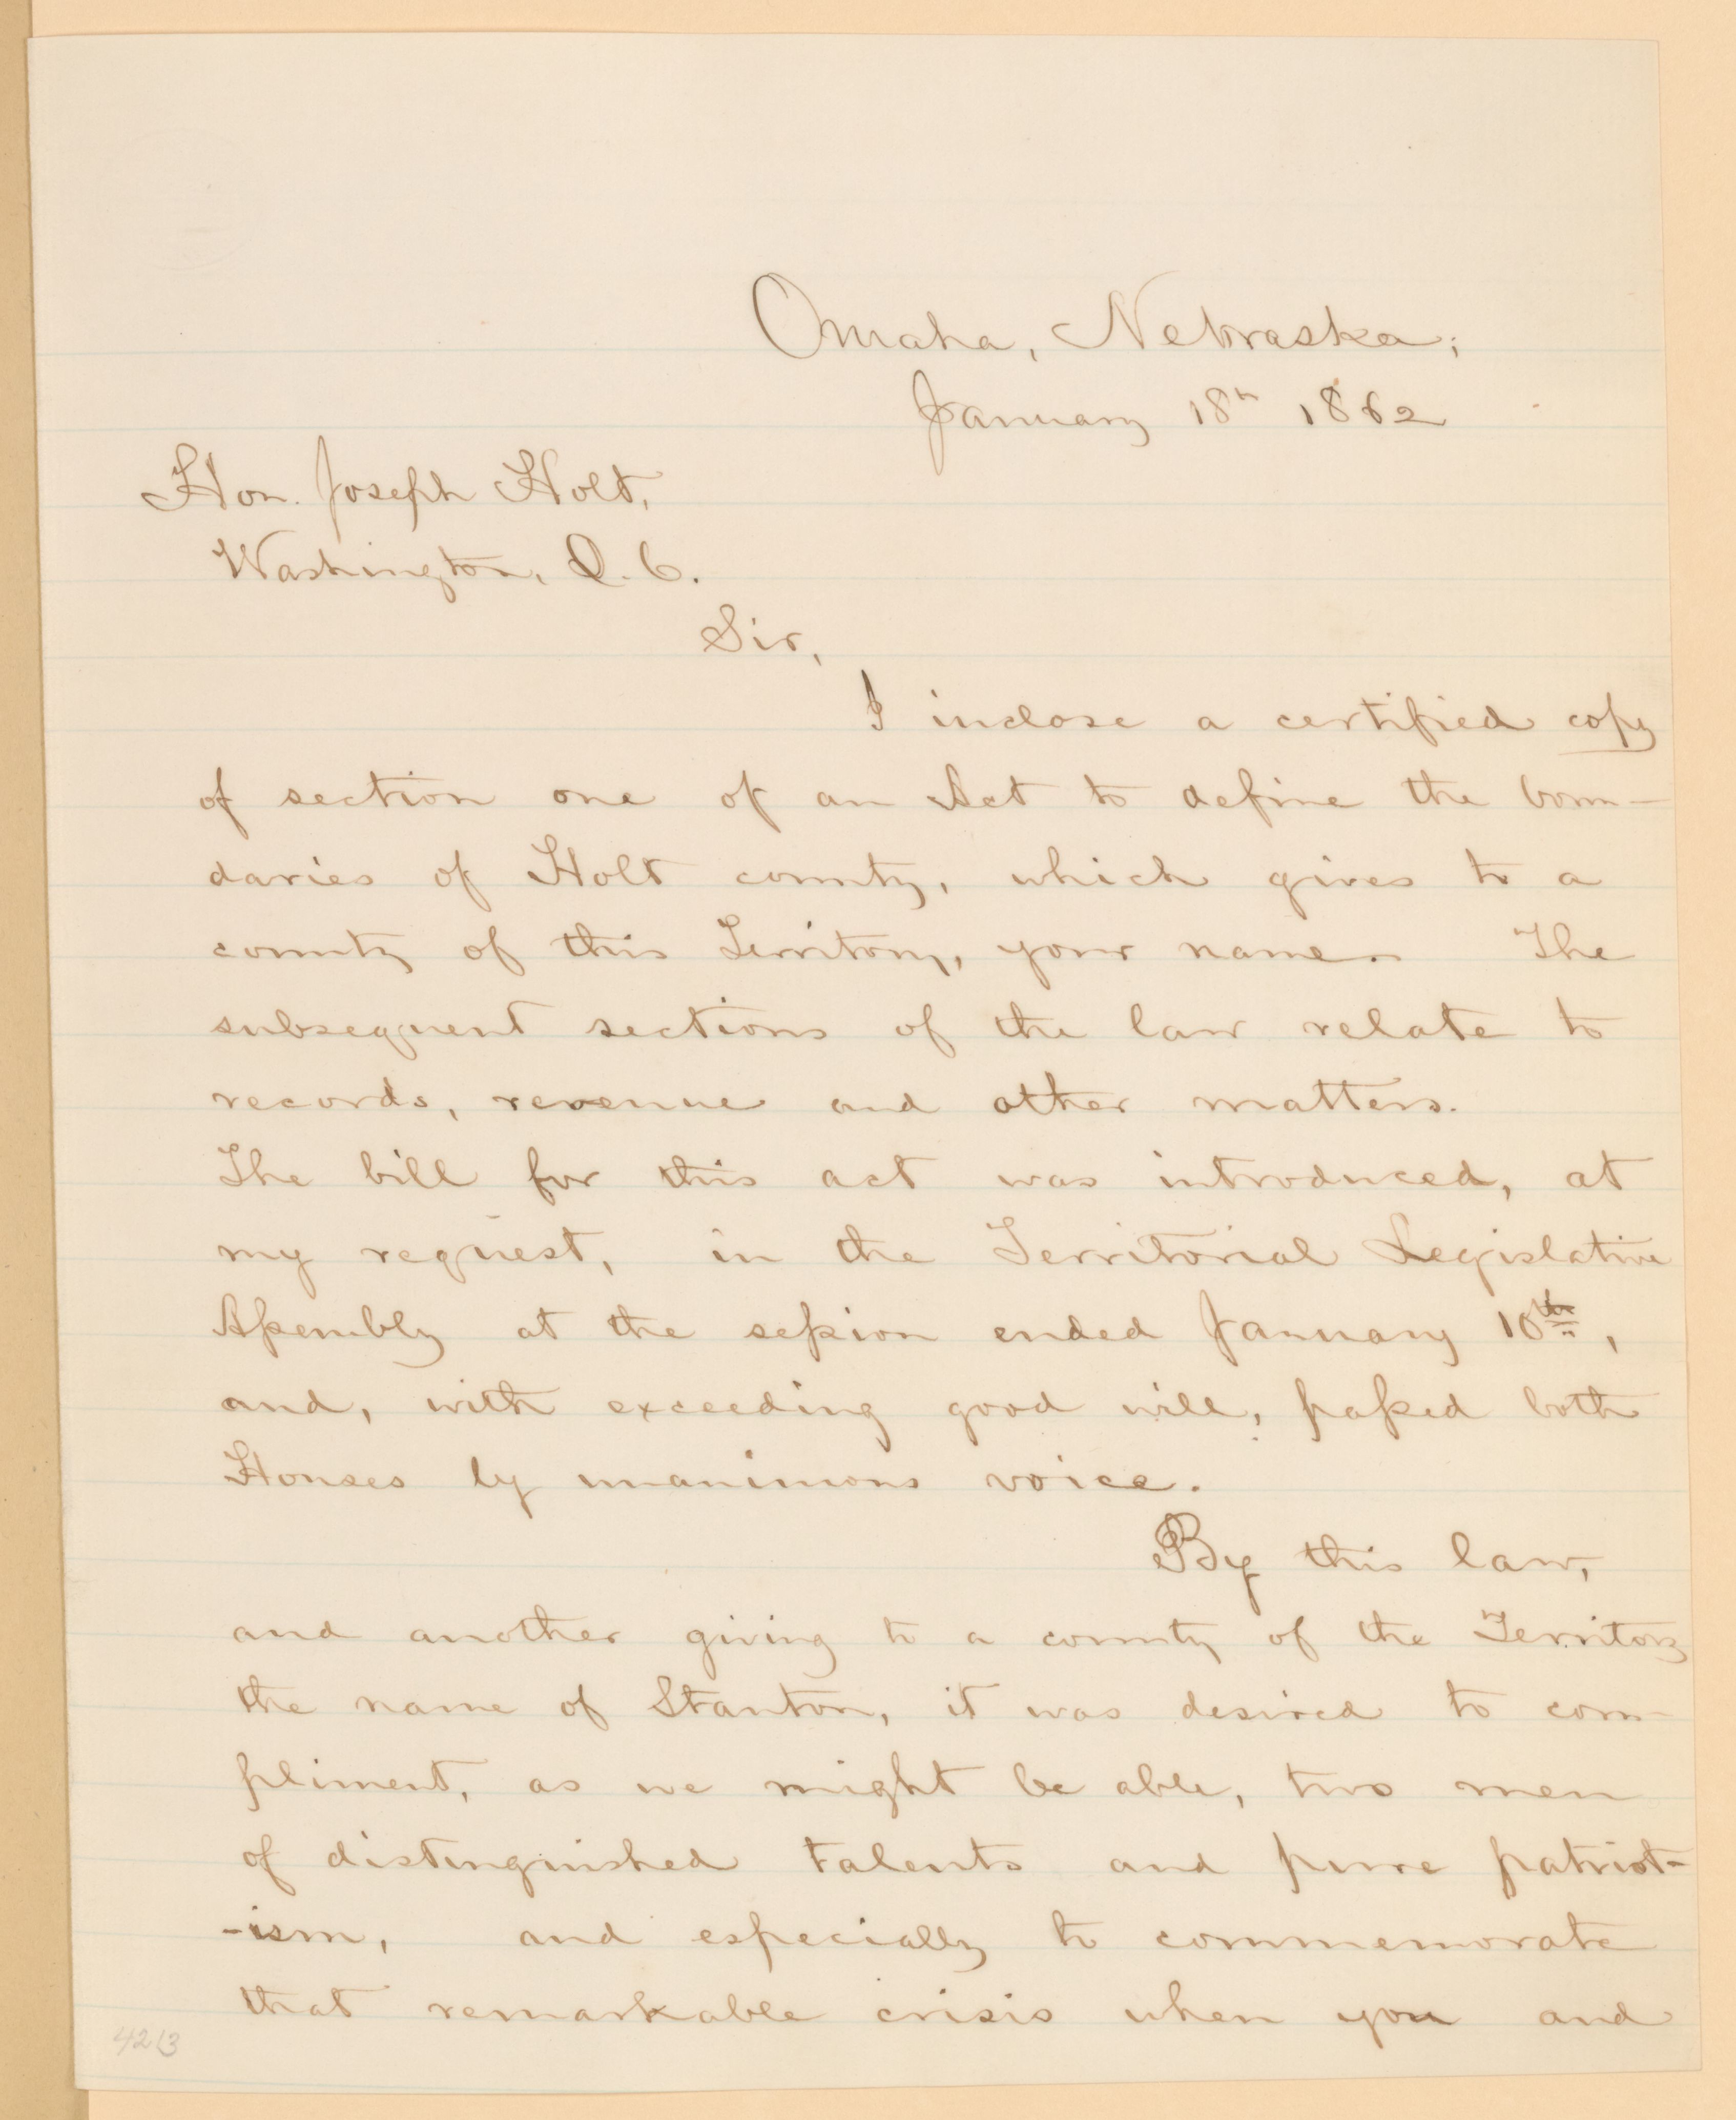 Omaha, Nebraska;
January 18th 1862
Hon. Joseph Holt,
Washington, D. C.
Sir,
I inclose a certified copy
of section one of an Act to define the boun-
daries of Holt county, which gives to a
county of this Territory, your name. The
subsequent sections of the law relate to
records, revenue and other matters.
The bill for this act was introduced, at
my request, in the Territorial Legislative
Assembly at the session ended January 10th,
and, with exceeding good will, passed both
Houses by unanimous voice.
By this law,
and another giving to a county of the Territory
the name of Stanton, it was desired to com-
pliment, as we might be able, two men
of distinguished talents and pure patriot-
-ism, and especially to commemorate
that remarkable crisis when you and
4213